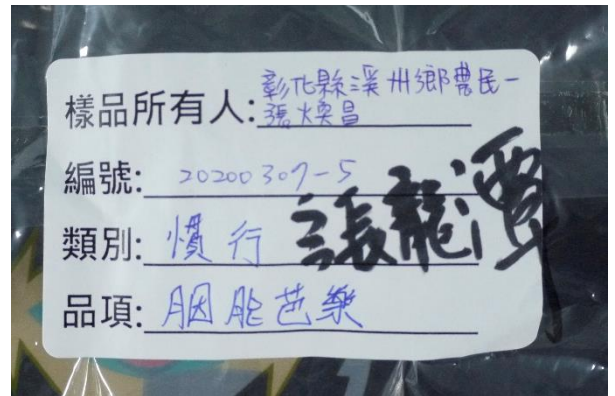 樣品所有人:彰化縣溪州鄉農民一
張煥昌
編號: 20200307-5
類別: 慣行
張龍潭
品項: 胭脂芭樂